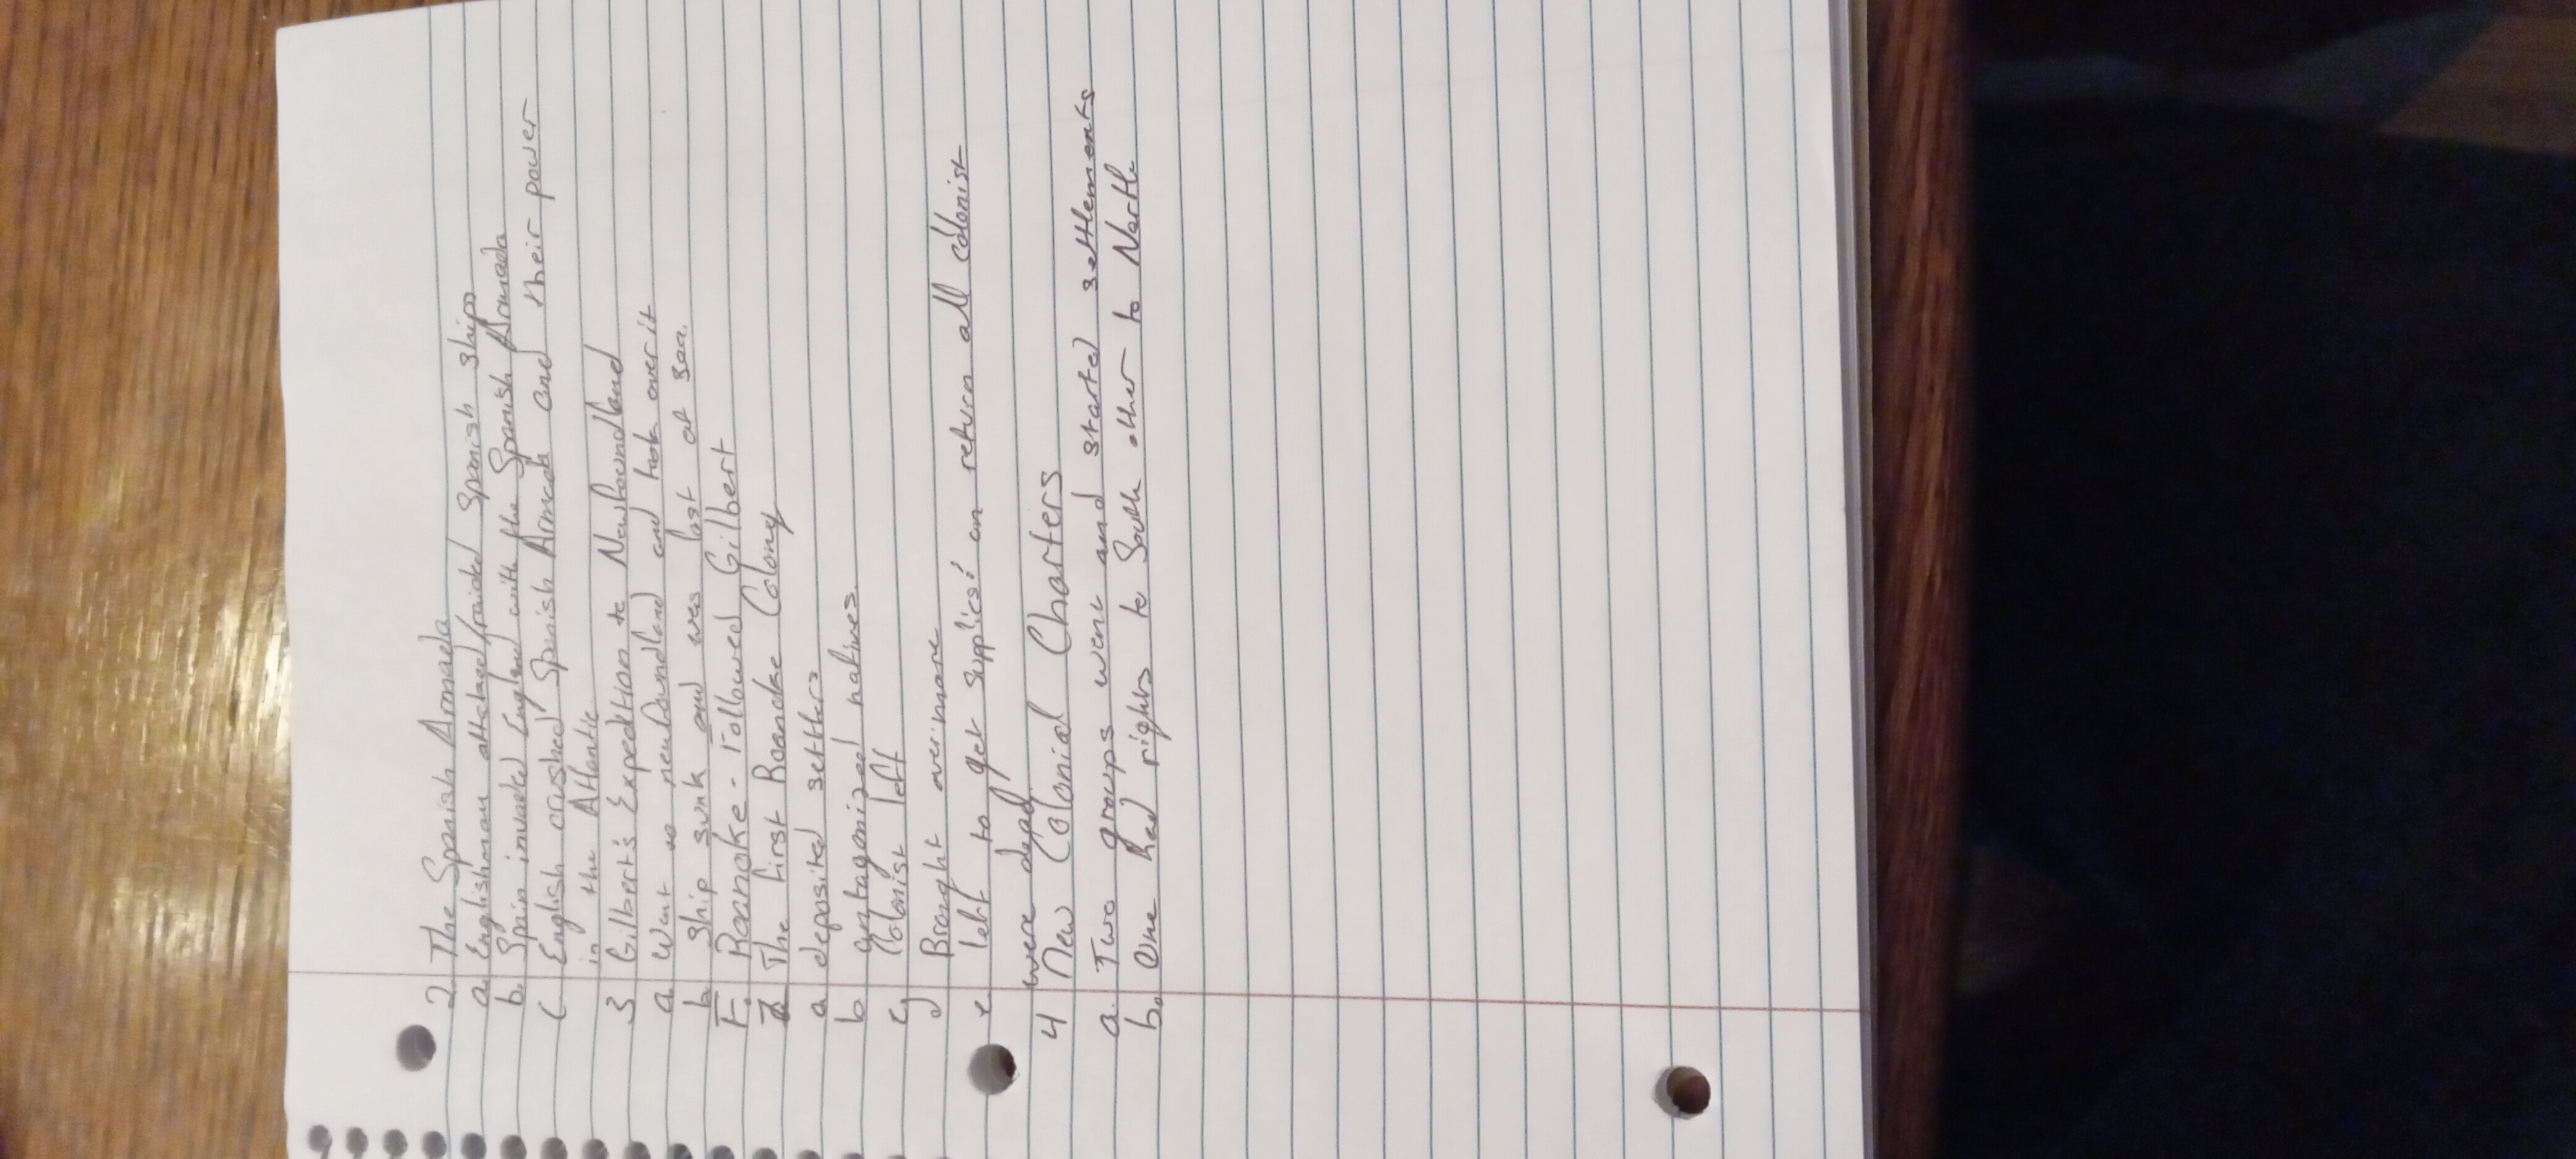 2. The Spanish Armada
a. Englishman attacked/raided Spanish ships
b. Spain invaded England with the Spanish Armada
c English crushed Spanish Armada and their power
in the Atlantic
3 Gilbert's Expedition to Newfoundland
a Went to newfoundland and took over it
b ship sunk and was lost at sea.
F. Roanoke - Followed Gilbert
The First Roanoke Colony
a deposited settlers
b antagonized natives.
c Colonist left
d Brought over more
e left to get supplies: on return all colonist
were dead
4 New Colonial Charters
a. Two groups went and started settlements
b. One had rights to South other to North